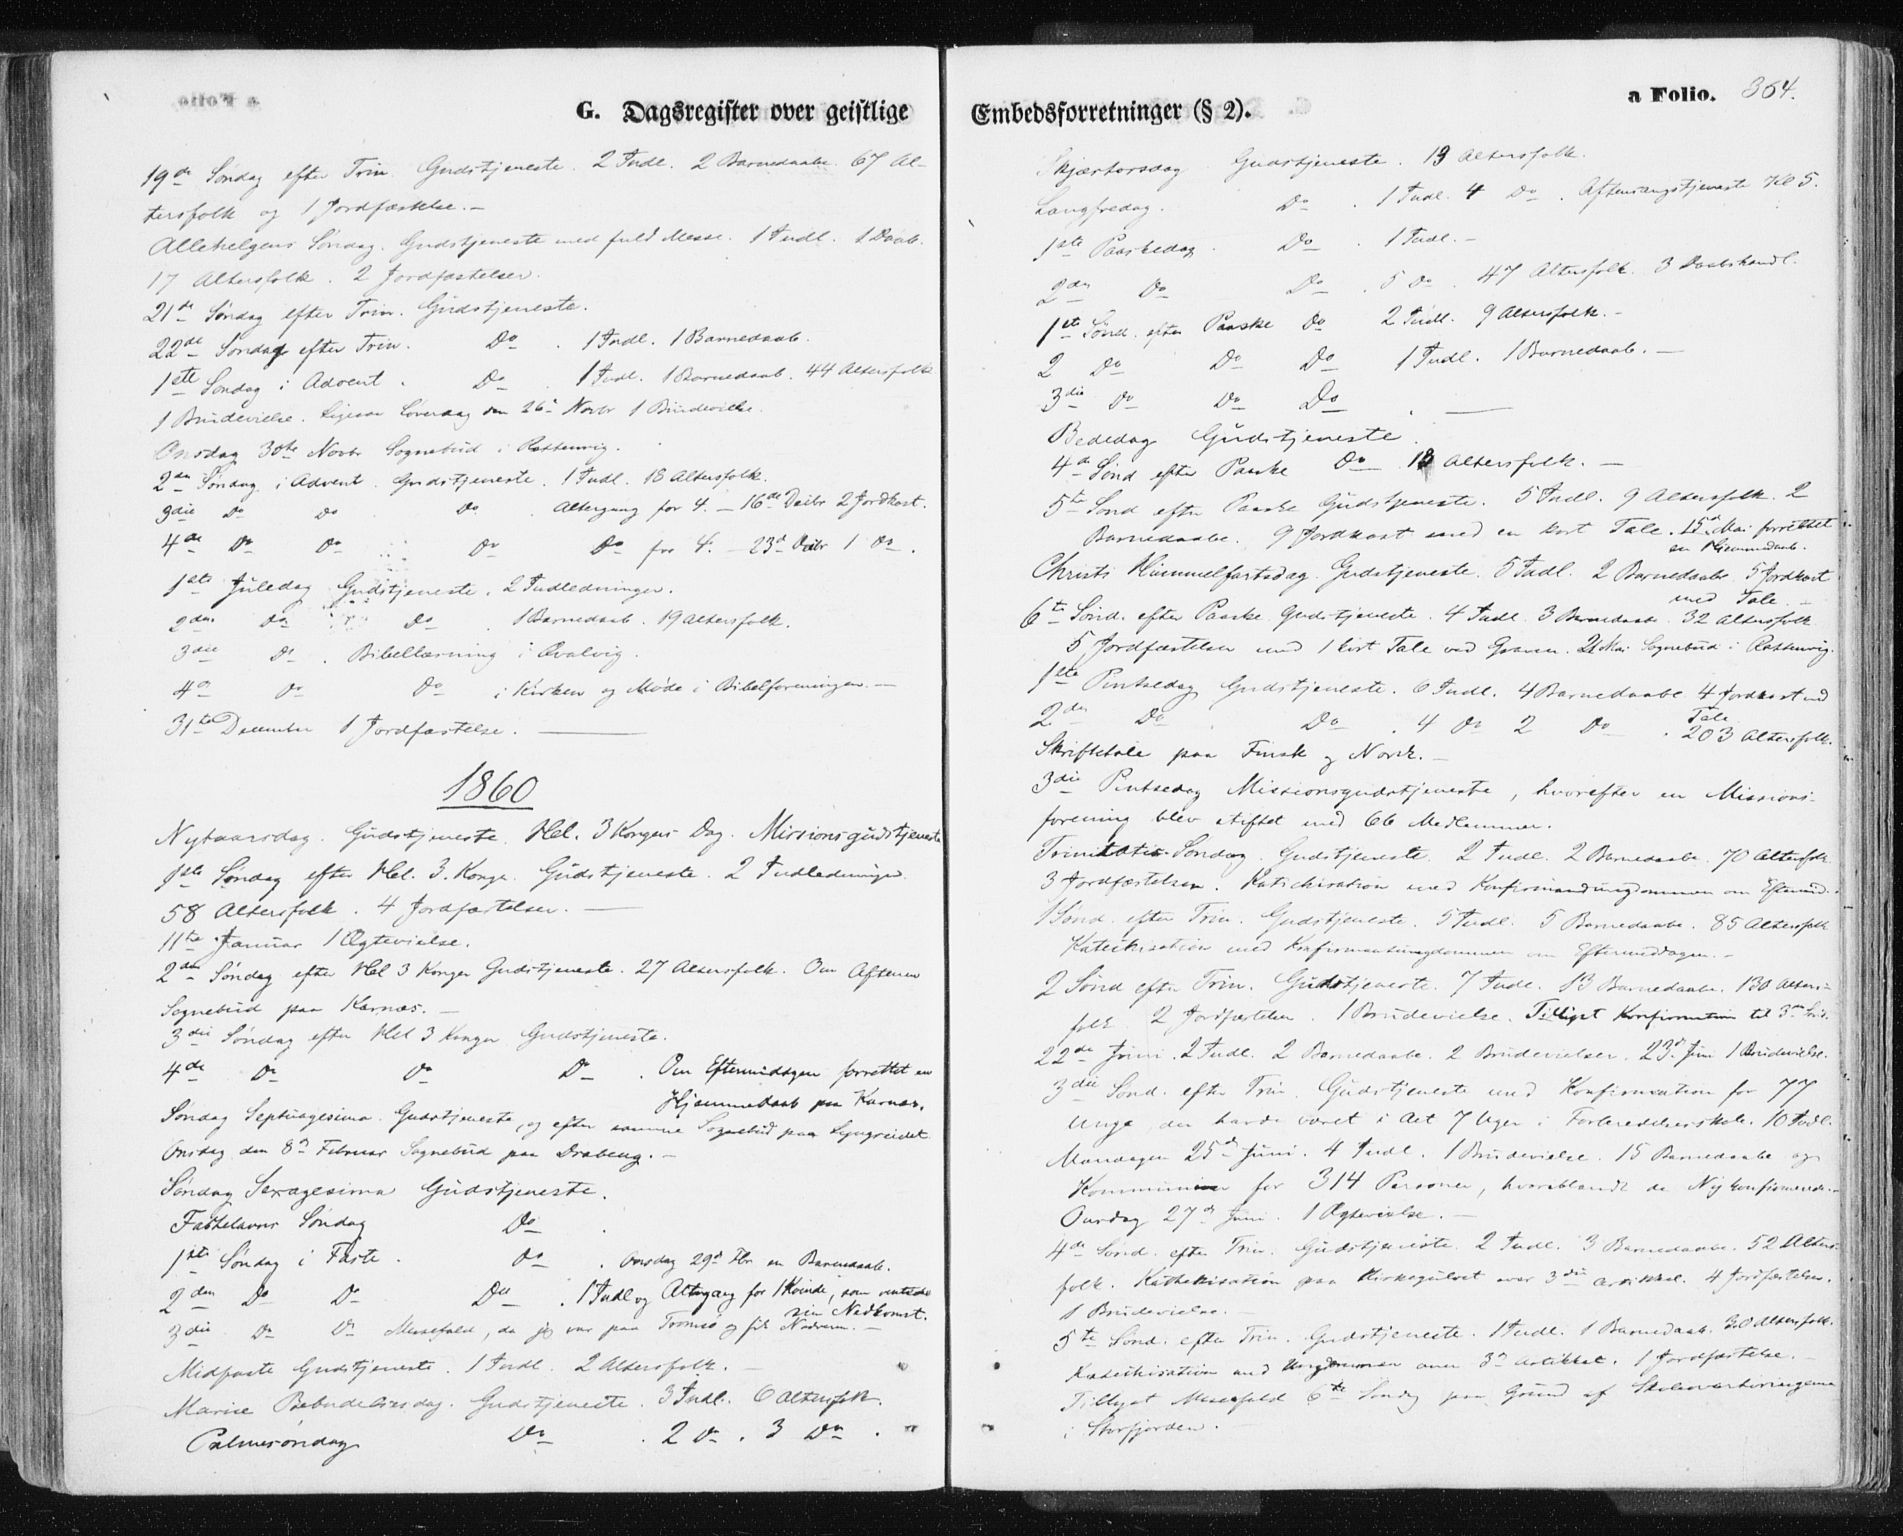 G. Dagsregister over geistlige
19de Søndag efter Trin. Gudstjeneste. 2 Indl. 2 Barnedaabe. 67 Al-
tersfolk og 1 Jordfæstelse. —
Allehelgens Søndag. Gudstjeneste med fuld Messe. 1 Indl. 1 Daab.
17 Altersfolk. 2 Jordfæstelser.
21de Søndag efter Trin. Gudstjeneste.
22de Søndag efter Trin. Do . 1 Indl. 1 Barnedaab.
1ste Søndag i Advent . Do . 1 Indl. 1 Barnedaab. 44 Altersfolk
1 Brudevielse. Ligesaa Løverdag den 26de Novbr 1 Brudevielse.
Onsdag 30te Novbr Sognebud i Rottenvig.
2den Søndag i Advent. Gudstjeneste. 1 Indl. 18 Altersfolk.
3die Do Do Do . Altergang for 4. — 16de Decbr 2 Jordkast.
4de Do Do Do Do for 4. — 23de Decbr 1 Do .
1ste Juledag Gudstjeneste. 2 Indledninger.
2den Do Do . 1 Barnedaab. 19 Altersfolk.
3die Do . Bibellæsning i Qvalvig.
4de Do Do i Kirken og Møde i Bibelforeningen. —
31te December 1 Jordfæstelse. —
1860
Nytaarsdag. Gudstjeneste. Hel. 3 Kongers Dag. Missionsgudstjeneste
1ste Søndag efter Hel. 3. Konge. Gudstjeneste. 2 Indledninger.
58 Altersfolk. 4 Jordfæstelser. —
11te Januar 1 Ægtevielse.
2den Søndag efter Hel 3 Konger Gudstjeneste. 27 Altersfolk. Om Aftenen
Sognebud paa Karnæs. —
3die Søndag efter Hel 3 Konger Gudstjeneste.
4de Do Do Do . Om Eftermiddagen forrettet en
Hjemmedaab paa Karnæs.
Søndag Septuagesima. Gudstjeneste, og efter samme Sognebud paa Lyngseidet
Onsdag den 8de Februar Sognebud paa Drabeng. —
Søndag Sexagesima Gudstjeneste.
Fastelavns Søndag Do .
1ste Søndag i Faste . Do . Onsdag 29de Fbr en Barnedaab.
2den Do Do Do . 1 Indl og Altergang for 1 Kvinde, som ventede
sin Nedkomst.
3die Do Do Messefald, da jeg var paa Tromsø og fik
Midfaste Gudstjeneste. 1 Indl. 2 Altersfolk. —
Mariæ Bebudelsesdag. Gudstjeneste. 3 Indl. 6 Altersfolk.
Palmesøndag Do . 2 Do . 3 Do .
Embedsforretninger (§ 2).
a Folio. 364.
Skjærtorsdag Gudstjeneste. 19 Altersfolk.
Langfredag. Do . 1 Indl. 4 Do . Aftensangstjeneste Kl 5.
1ste Paaskedag . Do . 1 Indl. —
2den Do Do . 5 Do . 47 Altersfolk. 3 Daabshandl.
1ste Sønd. efter Paaske Do 2 Indl. 9 Altersfolk. —
2 Do Do Do 1 Indl. 1 Barnedaab. —
3die Do Do Do . —
Bededag Gudstjeneste.
4de Sønd efter Paaske Do 18 Altersfolk. —
5te Sønd efter Paaske Gudstjeneste. 5 Indl. 9 Altersfolk. 2
Barnedaabe. 9 Jordkast med en kort Tale. 15de Mai forrettet
en Hjemmedaab.
Christi Himmelfartsdag. Gudstjeneste. 5 Indl. 2 Barnedaabe. 5 Jordkast
med Tale. —
6te Sønd. efter Paaske Gudstjeneste. 4 Indl. 3 Barnedaabe. 32 Altersfolk
5 Jordfæstelser med 1 kort Tale ved Graven. 21 Mai Sognebud i Rottenvig.
1ste Pintsedag Gudstjeneste. 6 Indl. 4 Barnedaabe 4 Jordkast med
Tale
2den Do . Do . 4 Do 2 Do . 203 Altersfolk.
Skriftetale paa Finsk og Norsk. —
3die Pintsedag Missionsgudstjeneste, hvorefter en Missions-
forening blev stiftet med 66 Medlemmer.
Trinitatis Søndag. Gudstjeneste. 2 Indl. 2 Barnedaabe. 70 Altersfolk
3 Jordfæstelser. Katechisation med Konfirmandungdommen om Eftermid.
1 Sønd. efter Trin. Gudstjeneste. 5 Indl. 5 Barnedaabe. 85 Altersfolk
Katechisation med Konfirmantungdommen om Eftermiddagen. —
2 Sønd efter Trin. Gudstjeneste. 7 Indl. 13 Barnedaabe. 130 Alters-
folk. 2 Jordfæstelser. 1 Brudevielse. Tillyst Konfirmation til 3die Sønd.
22de Juni. 2 Indl. 2 Barnedaabe. 2 Brudevielser. 23de Juni 1 Brudevielse.
3die Sønd. efter Trin. Gudstjeneste med Konfirmation for 77
Unge, der havde været i det 7 Uger i Forberedelsesskole. 10 Indl.
Mandagen 25de Juni. 4 Indl. 1 Brudevielse. 15 Barnedaabe og
Kommunion for 314 Personer, hvoriblandt de Nykonfirmerede. —
Onsdag 27de Juni. 1 Ægtevielse. —
4de Sønd. efter Trin. Gudstjeneste. 2 Indl. 3 Barnedaabe. 52 Alters-
folk. Kathekisation paa Kirkegulvet over 3die Artikkel. 4 Jordfæstelser.
1 Brudevielse. —
5te Sønd. efter Trin. Gudstjeneste. 1 Indl. 1 Barnedaab. 30 Altersfolk.
Katechisation med Ungdommen over 3de Artikkel. 1 Jordfæstelse. —
Tillyst Messefald 6te Søndag paa Grund af
i Storfjorden. —